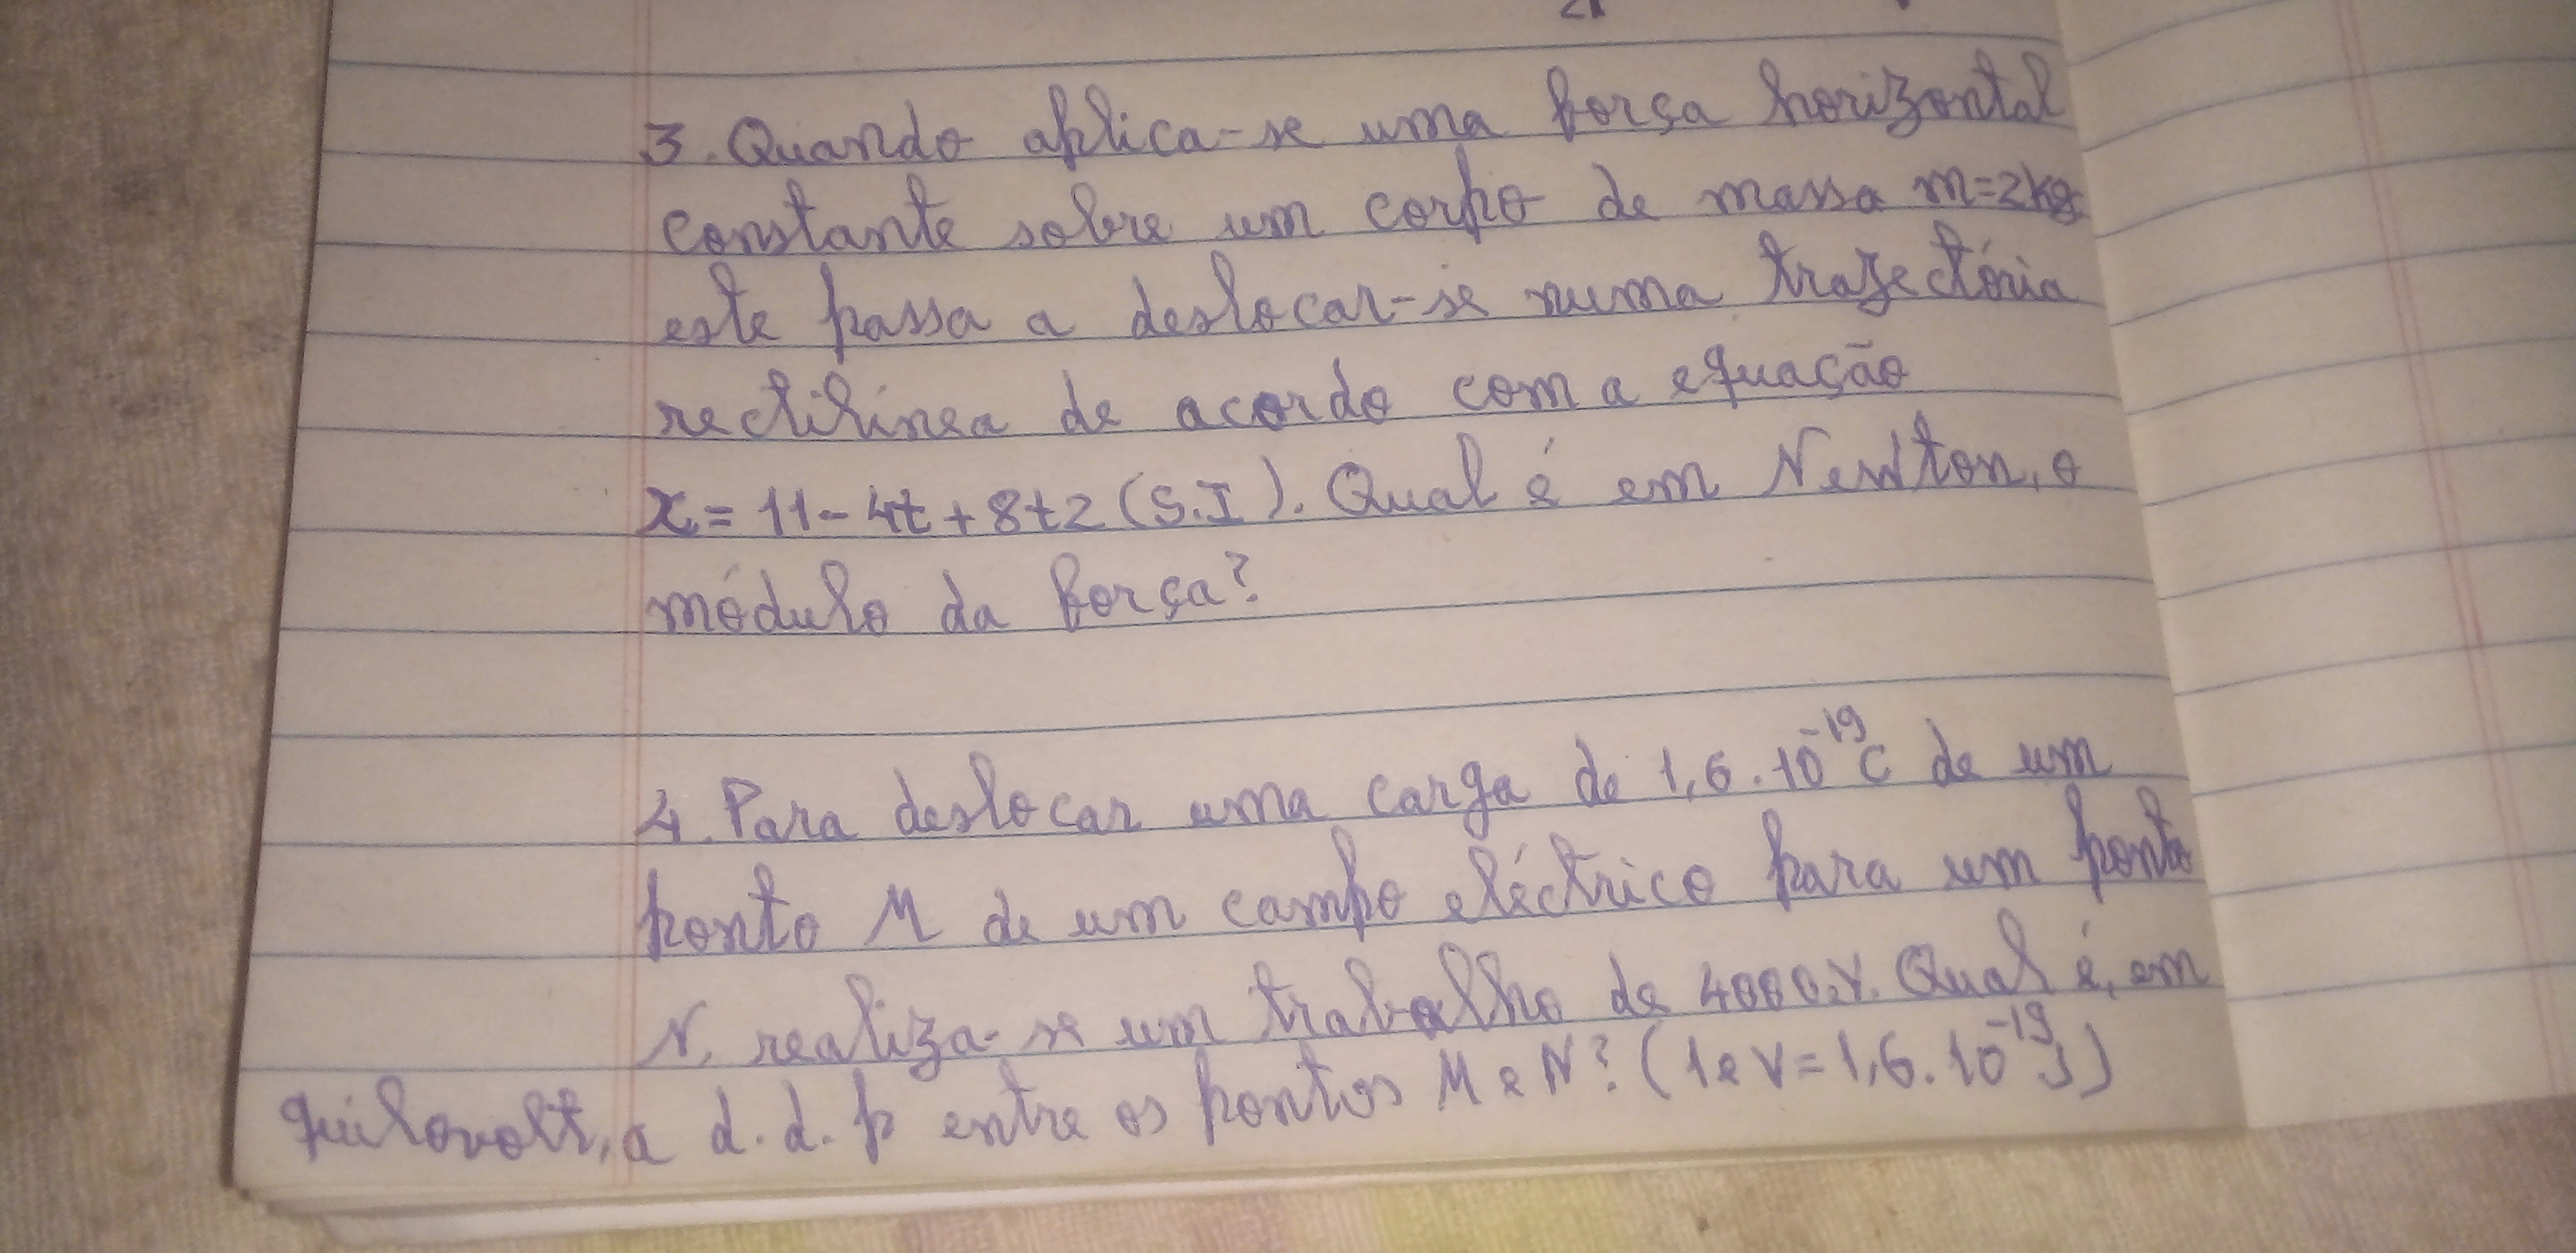 3. Quando aplica-se uma força horizontal
constante sobre um corpo de massa m=2kg
este passa a deslocar-se numa trajectória
rectilínea de acordo com a equação
x = 11 - 4t + 8t2 (S.I). Qual é em Newton, o
módulo da força?
4. Para deslocar uma carga de 1,6 . 10⁻¹⁹C de um
ponto M de um campo eléctrico para um ponto
N, realiza-se um trabalho de 4000eV. Qual é, em
quilovolt, a d.d.p entre os pontos M e N? (1eV = 1,6.10⁻¹⁹J)